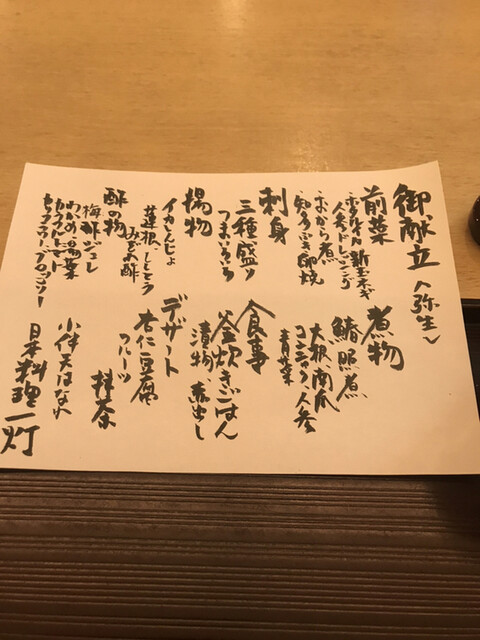 御献立〈弥生〉
前菜
ホタルイカ 新玉ネギ
人参ドレッシング
おから煮
知多いさき卵焼
刺身
三種盛り
つまいろいろ
揚物
イカしんじょ
蓮根、ししとう
みぞれ酢
酢の物
梅酢ジュレ
わかめ 湯葉
カラフルトマト
カリフラワー ブロッコリー
煮物
鰆照煮
大根、南瓜
コンニャク 人参
青菜
食事
釜炊きごはん
漬物 赤出し
デザート
杏仁豆腐
フルーツ
抹茶
小伴天はなれ
日本料理 一灯